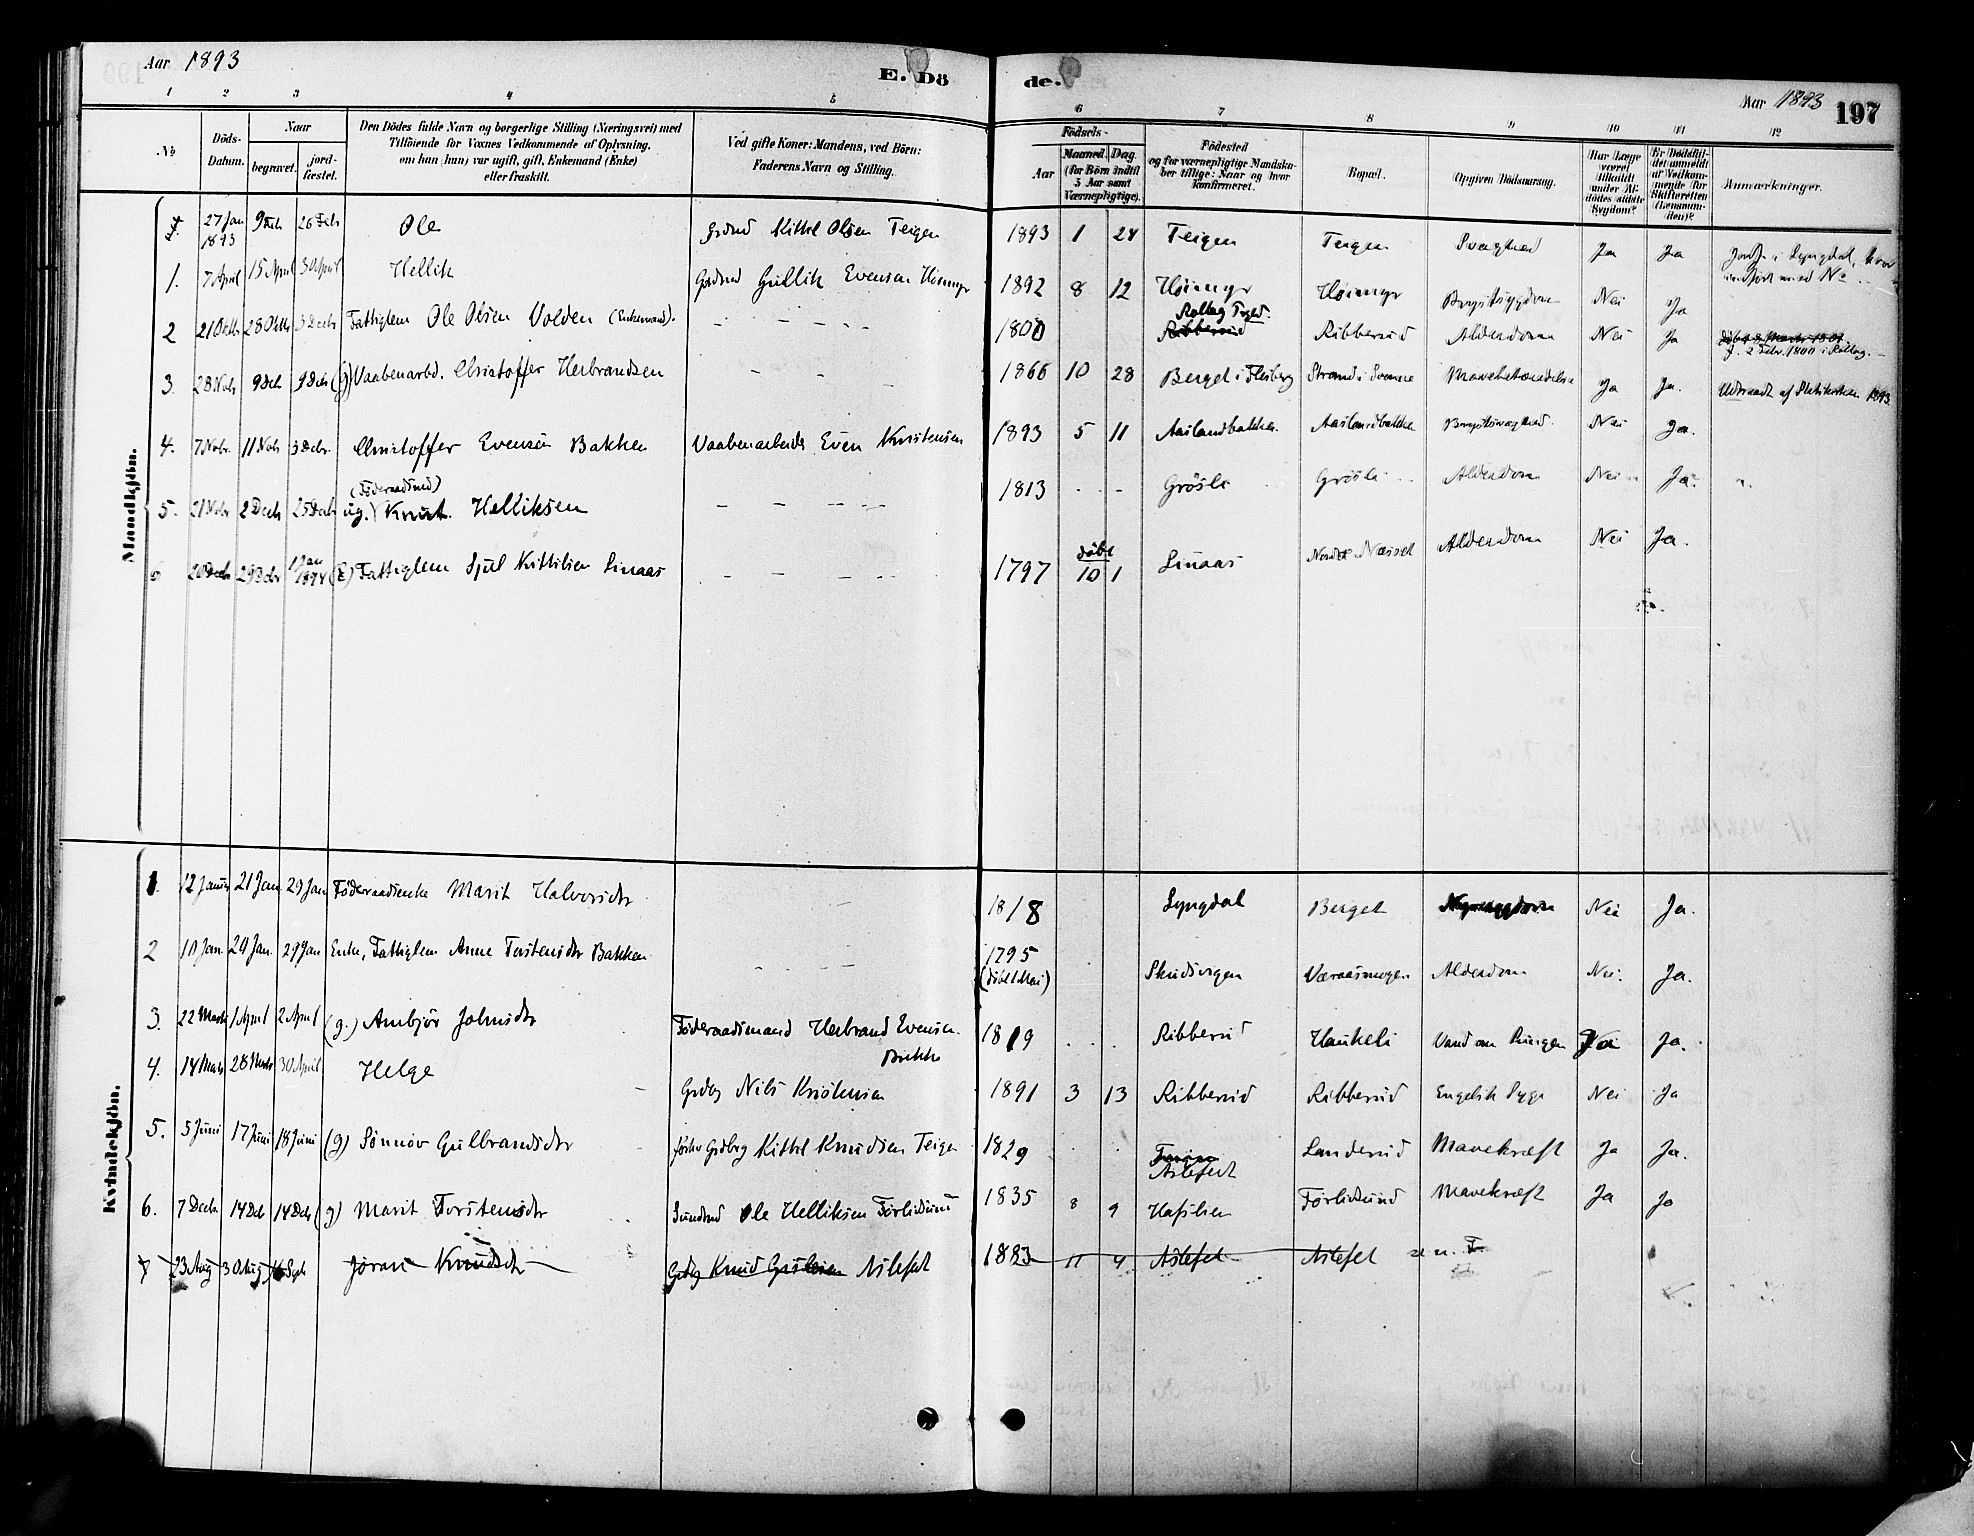 Aar 1893
E. Dö
de.
Aar 1893
197
1 2 3 4 5 6 7 8 9 10 11 12
No
Döds-Datum.
Naar
begravet.
jord-fæstet.
Den Dödes fulde Navn og borgerlige Stilling (Næringsvei) med
Tilföiende for Voxnes Vedkommende af Oplysning,
om han (hun) var ugift, gift, Enkemand (Enke)
eller fraskilt.
Ved gifte Koner: Mandens, ved Börn:
Faderens Navn og Stilling.
Födsels-
Aar
Maaned. Dag.
(for Börn indtil
5 Aar samt
Værnepligtige).
Födested
og for værnepligtige Mandska-
ber tillige: Naar og hvor
konfirmeret.
Bopæl.
Opgiven Dödsaarsag.
Har Læge
været
tilkaldt
under Af-
dødes sidste
Sygdom?
Er Dödsfal-
det anmeldt
af Vedkom-
mende for
Skifteretten
(Lensman-
den)?
Anmærkninger.
Mandkjön.
27 Jan 1893 9 Feb 26 Feb Ole Grdmd Kittel Olsen Teigen 1893 1 24 Teigen Teigen Svaghed Ja Ja i Lyngdal, hvor indført med No
1. 7 April 15 April 30 April Hellik Grdmd Gullik Evensen Høimyr 1892 8 12 Høimyr Høimyr Brystsygdom Nei Ja
2 21 Oktb 28 Oktb 3 Decb Fattiglem Ole Olsen Volden (Enkemand). 1800 Rollag Prgld. Ribberud Ribberud Alderdom Nei Ja f. 2 Febr. 1800 i Rollag.
3. 28 Nobr 9 Dcb 9 Dcb (g) Vaabenarbd. Christoffer Herbrandsen 1866 10 28 Berget i Flesberg Strand i Svene Mavebetændelse Ja Ja. Udtraadt af Statskirken 1893.
4. 7 Nobr. 11 Nobr 3 Debr. Christoffer Evensen Bakken Vaabenarbeider Even Kristensen 1893 5 11 Aaslandbakken Aaslandbakken Brystsvaghed. Nei Ja.
5. 21 Nobr 2 Decb 25 Decb (Föderaadsmd) ug.) Knut Helliksen 1813 Grösli Grösli Alderdom Nei Ja.
6 20 Decb 29 Debr 1 Jan 1894 (E) Fattiglem Sjul Kittilsen Linaas 1797 døbt 10 1 Linaas Nordre Næsset Alderdom Nei Ja.
Kvindekjön.
1. 12 Januar 21 Jan 29 Jan Föderaadsenke Marit Halvorsdtr 1818 Lyngdal Berget Nei Ja.
2 10 Jan. 20 Jan. 29 Jan Enke, Fattiglem Anne Torstensdtr Bakken 1795 (døbt 1 Mai) Skudsvigen Væraasmogen Alderdom Nei. Ja.
3. 22 Marts 1 April 2 April (g.) Ambjör Johnsdtr Föderaadsmand Herbrand Evensen Bakke 1819 Ribberud Haukeli Vand om Lungen Ja.
4. 14 Marts 28 Marts 30 April Helge Grdbg Nils Kristensen 1891 3 13 Ribberud Ribberud Engelsk Syge Nei Ja
5. 5 Juni 17 Juni 18 Juni (g) Sönnöv Gulbrandsdtr Grdbrg Kittel Knudsen Teigen 1829 Aslefet Landerud Mavekræft Ja Ja.
6. 7 Decbr 14 Dcb 14 Dcb (g) Marit Torstensdtr Ole Helliksen Förlisund 1835 8 9 Haslien Förlisund Mavekræft Ja Ja
7 23 Aug 30 Aug Sept Joran Knudsdtr Grdbg Knud Aslefet 1883 11 4 Aslefet Aslefet